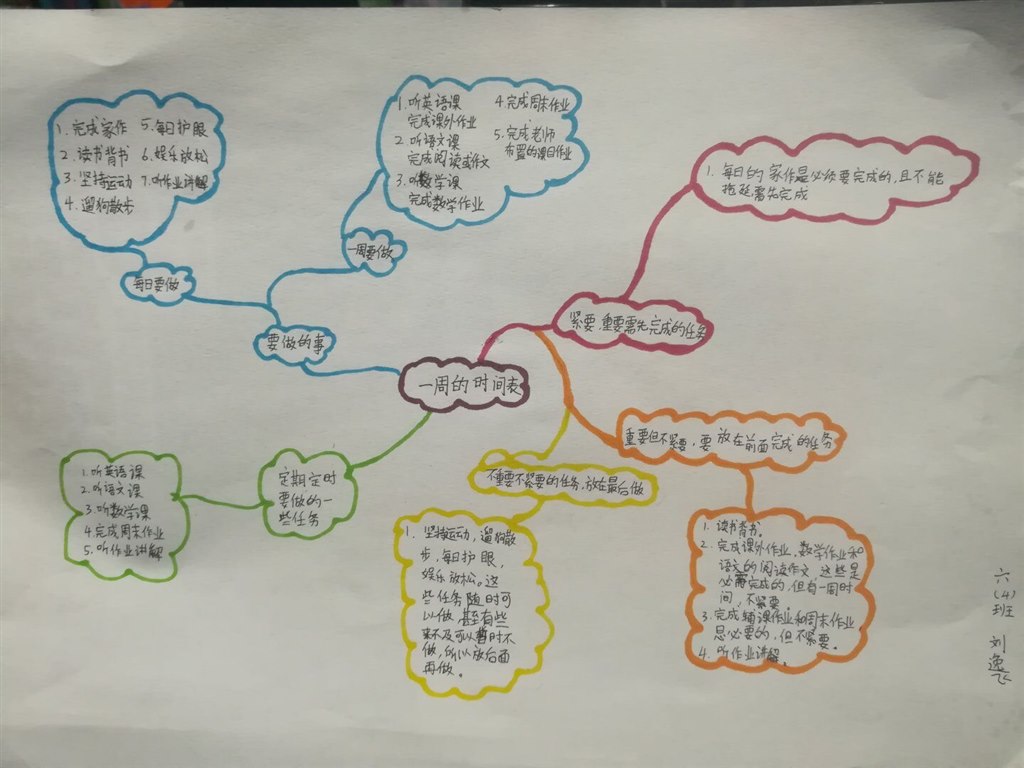 1. 完成家作
2. 读书背书
3. 坚持运动
4. 遛狗散步
5. 每日护眼
6. 娱乐放松
7. 听作业讲解
每日要做
1. 听英语课
完成课外作业
2. 听语文课
完成阅读或作文
3. 听数学课
完成数学作业
4. 完成周末作业
5. 完成老师
布置的课目作业
一周要做
要做的事
一周的时间表
紧要,重要需先完成的任务
1. 每日的家作是必须要完成的,且不能
拖延需先完成
重要但不紧要,要放在前面完成的任务
1. 读书背书。
2. 完成课外作业,数学作业和
语文的阅读作文,这些是
必需完成的,但有一周时
间,不紧要。
3. 完成辅课作业和周末作业
是必要的,但不紧要。
4. 听作业讲解。
不重要不紧要的任务,放在最后做
1. 坚持运动,遛狗散
步,每日护眼,
娱乐放松。这
些任务随时可
以做,甚至有些
来不及可以暂时不
做,所以放后面
再做。
定期定时
要做的一
些任务
1. 听英语课
2. 听语文课
3. 听数学课
4. 完成周末作业
5. 听作业讲解
六(4)班 刘逸飞